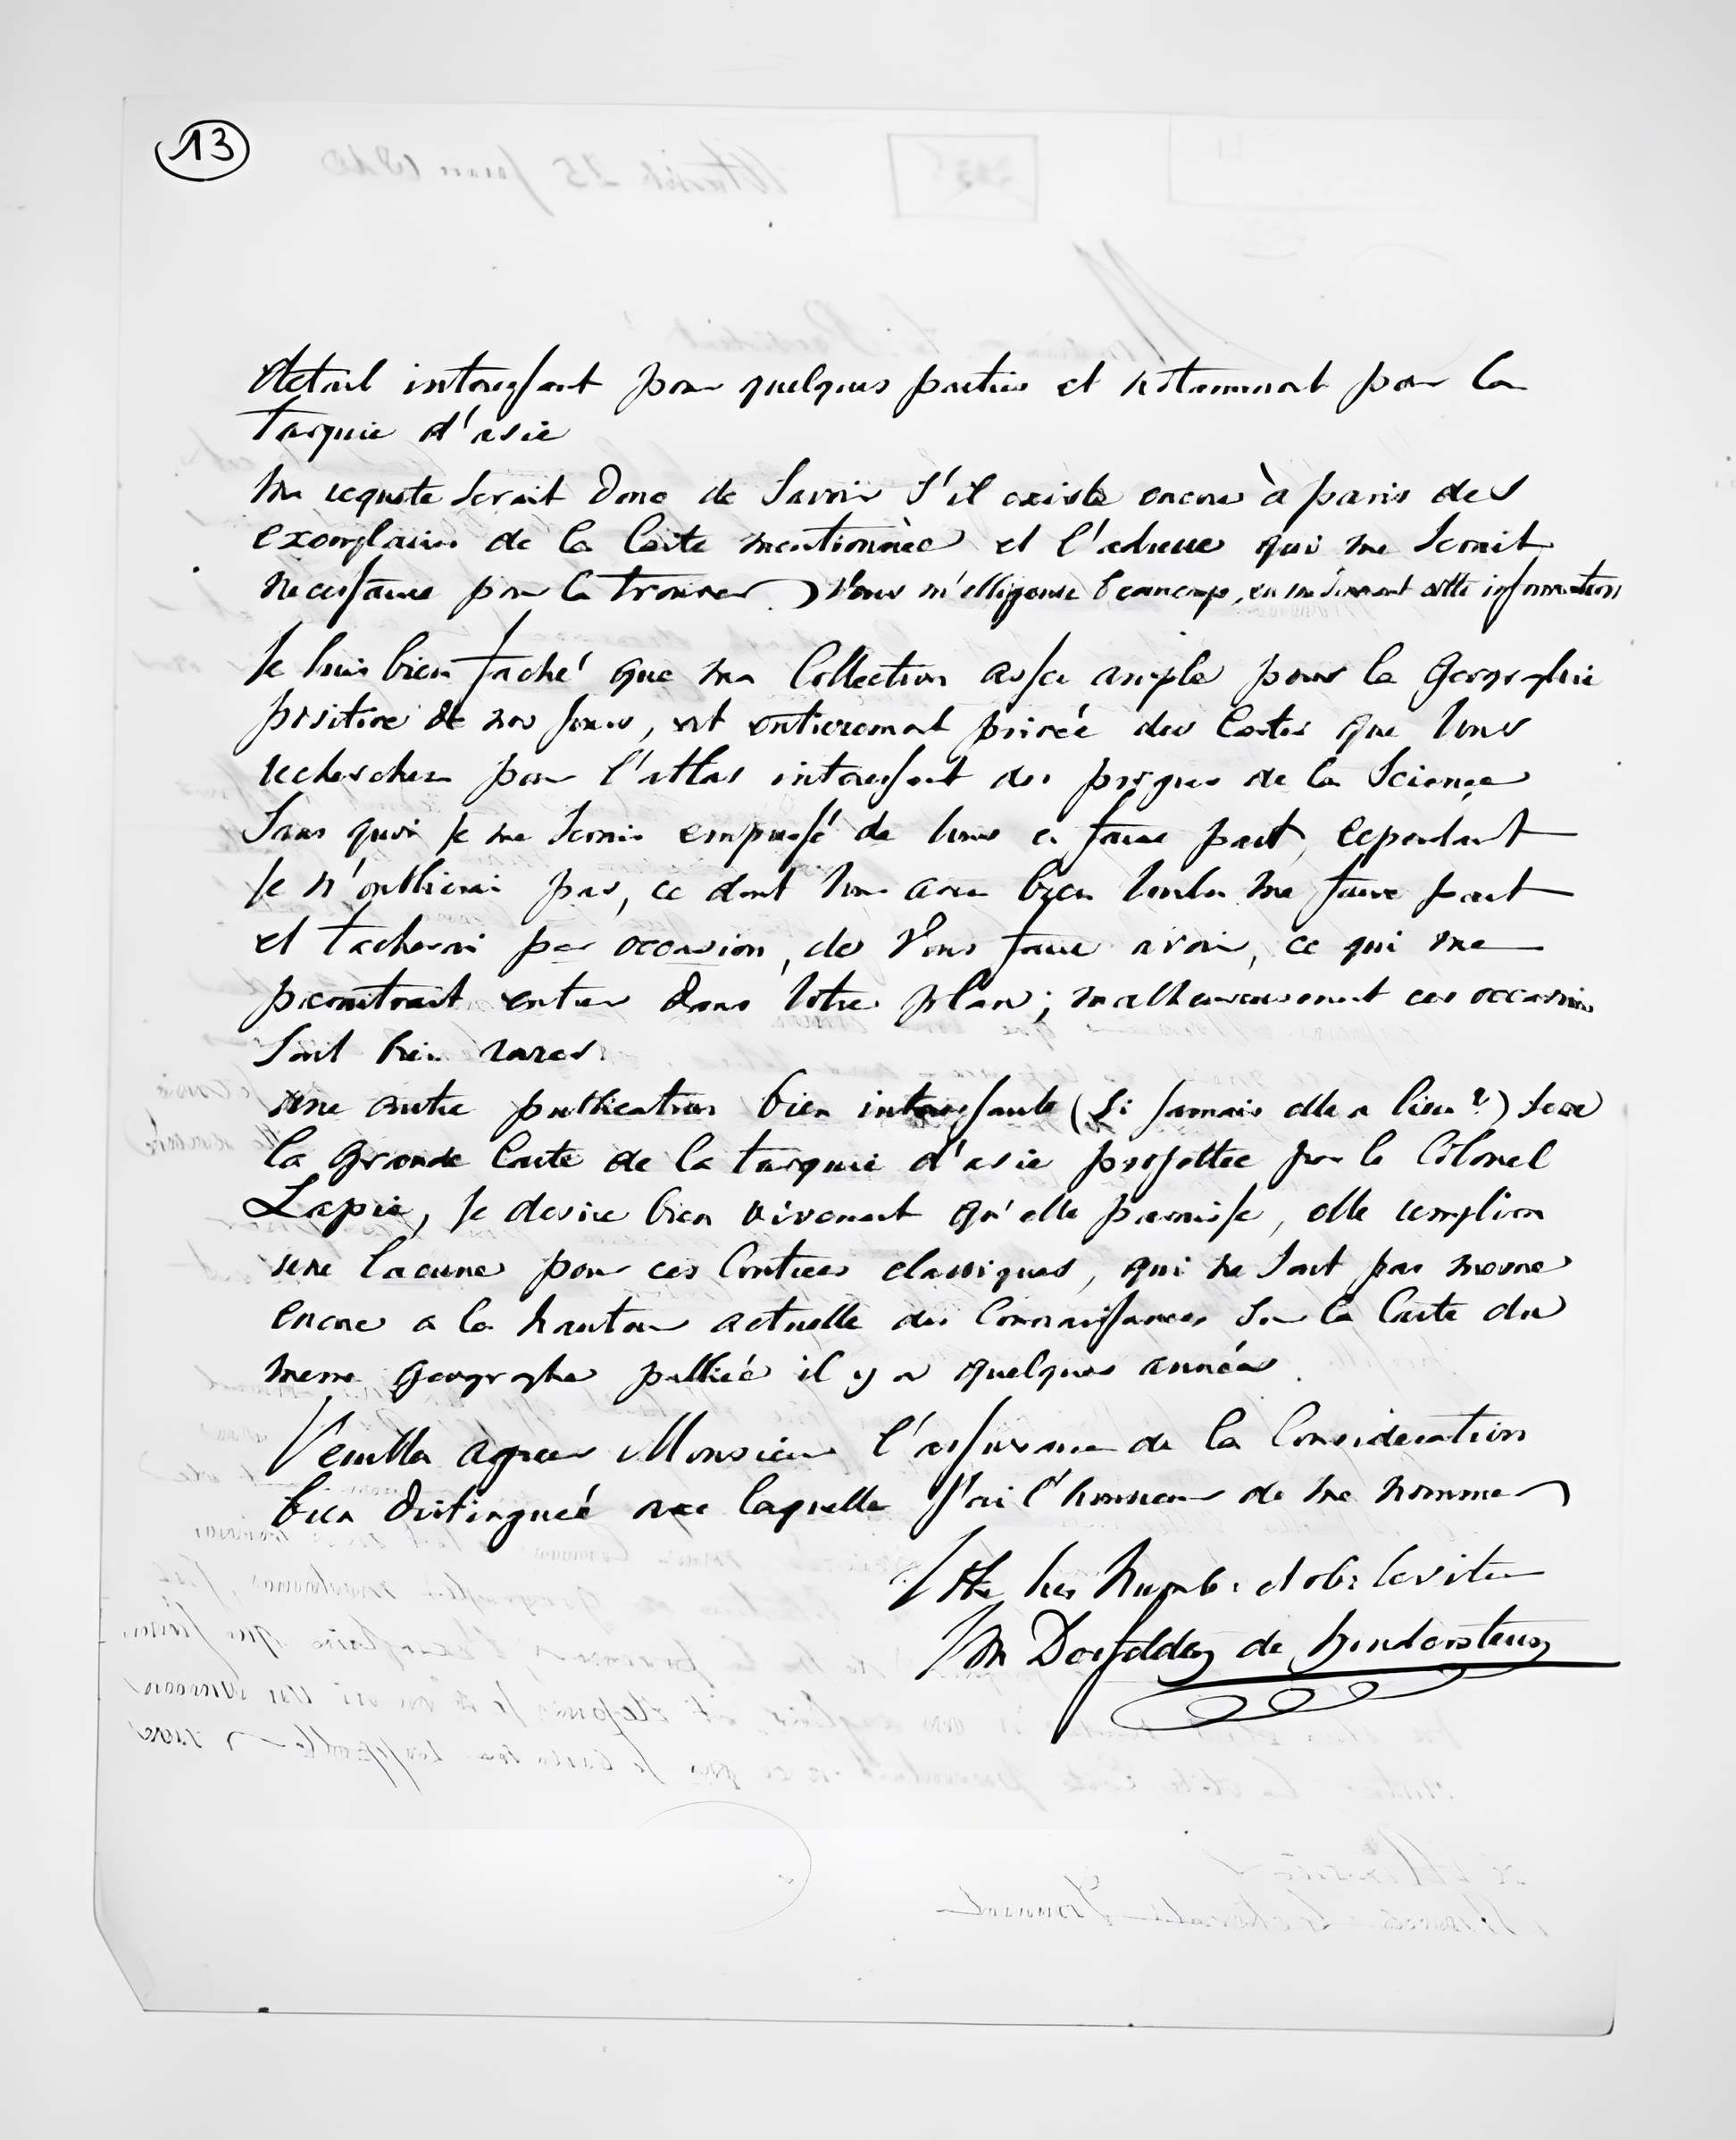 13
detail interessant pour quelques parties et notamment pour la
Turquie d'asie
Ma requete serait donc de Savoir s'il existe encore à paris des
exemplaires de la Carte mentionnèe et l'adresse qui me Serait
necessaire pour la trouver. Vous m'obligerie beaucoup, en me donnant cette information
Je suis bien faché que ma Collection assez ample pour la Geographie
positive de nos jours, est entierement privée des Cartes que Vous
recherchez pour l'atlas interessant des progres de la Science
Sans quoi Je me Serais empressé de Vous en faire part, cependant
Je n'oublierai pas, ce dont Vous avez bien Voulu me faire part
et tacherai par occasion, de Vous faire avoir, ce qui me
paraitrait entrer dans Votre plan; malheureusement ces occasions
Sont bien rares.
Une autre publication bien interessante (Si Jamais elle a lieu?) Sera
la Grande Carte de la turquie d'asie projettee par le Colonel
Lapie, Je desire bien vivement qu'elle paraisse, elle remplira
une lacune pour ces Contrees classiques, qui ne Sont pas meme
encore a la hauteur actuelle des Connaissances Sur la Carte du
meme geographe publiée il y a quelques années.
Veuillez agreer Monsieur l'assurance de la Consideration
bien distingueé avec laquelle J'ai l'honneur de me nommer
Vtre tres humb: et ob: Serviteur
de